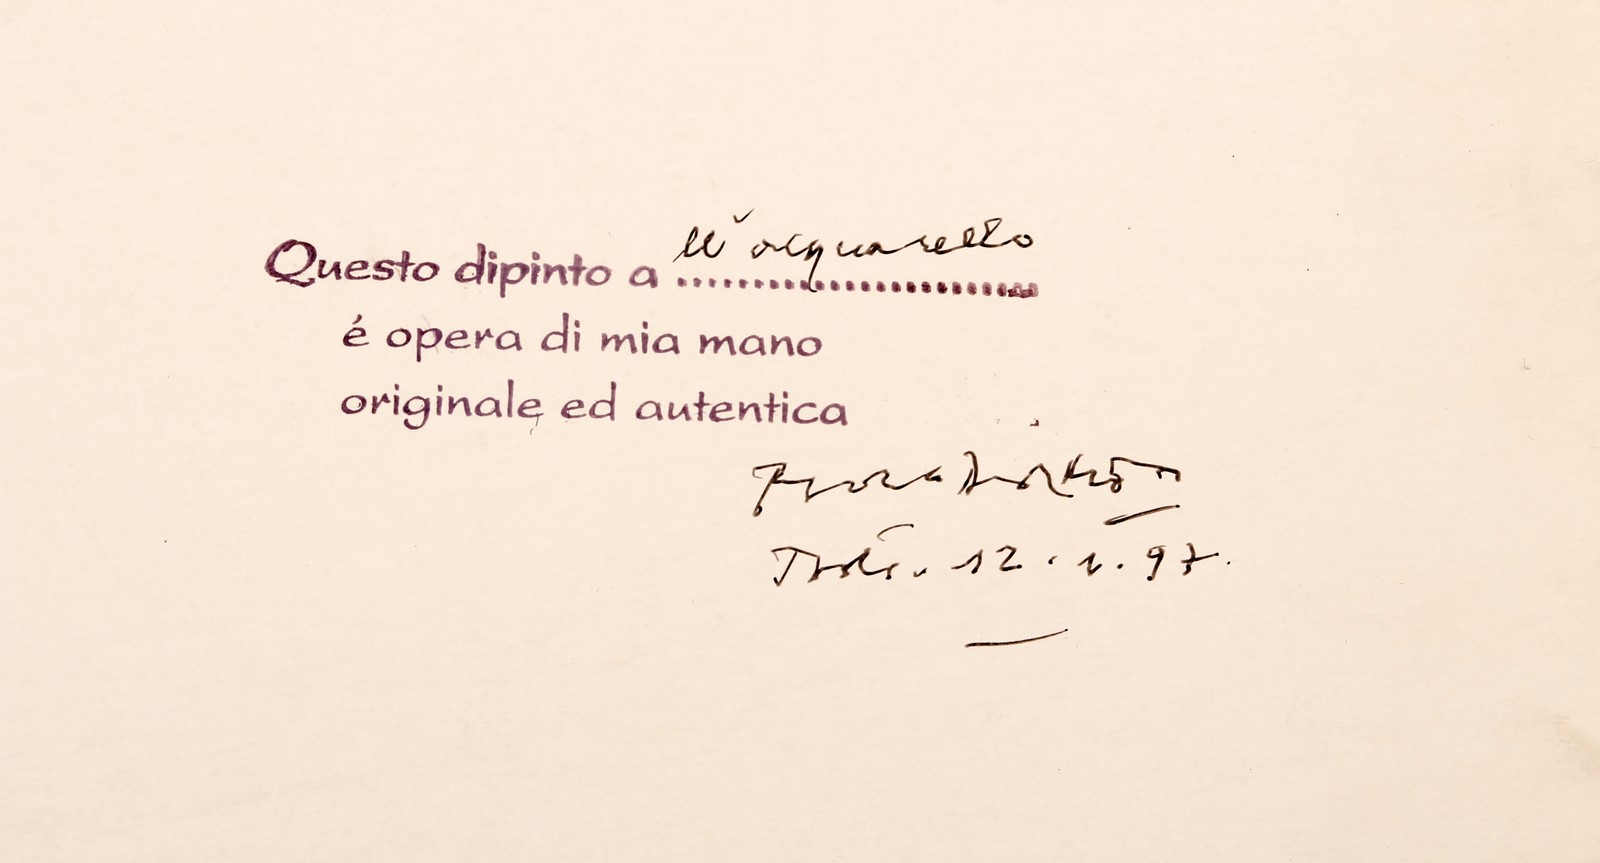 Questo dipinto a ll'acquarello
é opera di mia mano
originale ed autentica
Todi. 12.1.97.